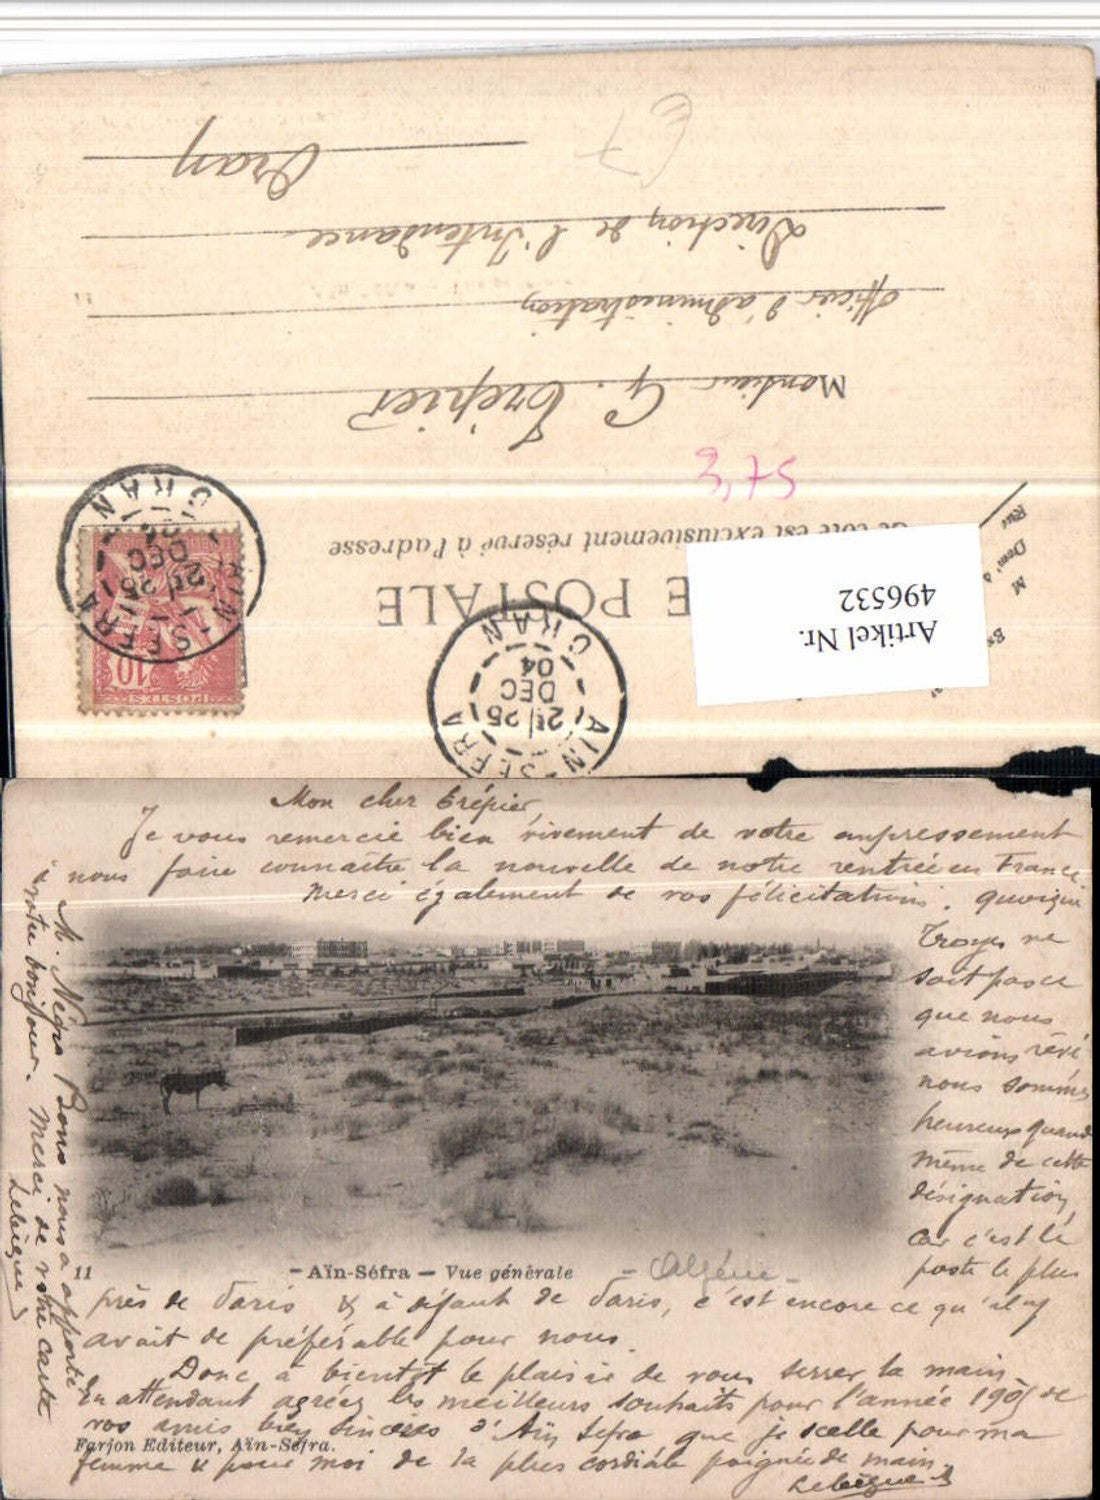 Oran
Direction de l'Intendance
Officier d'administration
Monsieur G. Trépier
3,75
Ce côté est exclusivement réservé à l'adresse
E POSTALE
Artikel Nr.
496532
AIN-SEFRA
ORAN
25
DEC
04
AIN-SEFRA
ORAN
25
DEC
10
POSTES
Mon cher Trépier,
Je vous remercie bien vivement de votre empressement
à nous faire connaître la nouvelle de notre rentrée en France
Merci également de vos félicitations. quoique
Troyes ne
soit pas ce
que nous
avions rêvé
nous sommes
heureux quand
même de cette
désignation,
car c'est le
poste le plus
11
– Aïn-Séfra – Vue générale
– Algérie –
près de Paris & à défaut de Paris, c'est encore ce qu'il y
avait de préférable pour nous.
Donc, à bientôt le plaisir de vous serrer la main.
En attendant agréez les meilleurs souhaits pour l'année 1905 de
vos amis bien sincères d'Aïn Sefra que je scelle pour ma
Farjon Editeur, Aïn-Sefra.
femme & pour moi de la plus cordiale poignée de main.
Lebègue
M. Nègre Bons nous a apporté
votre bonjour. Merci de votre carte
Lebègue